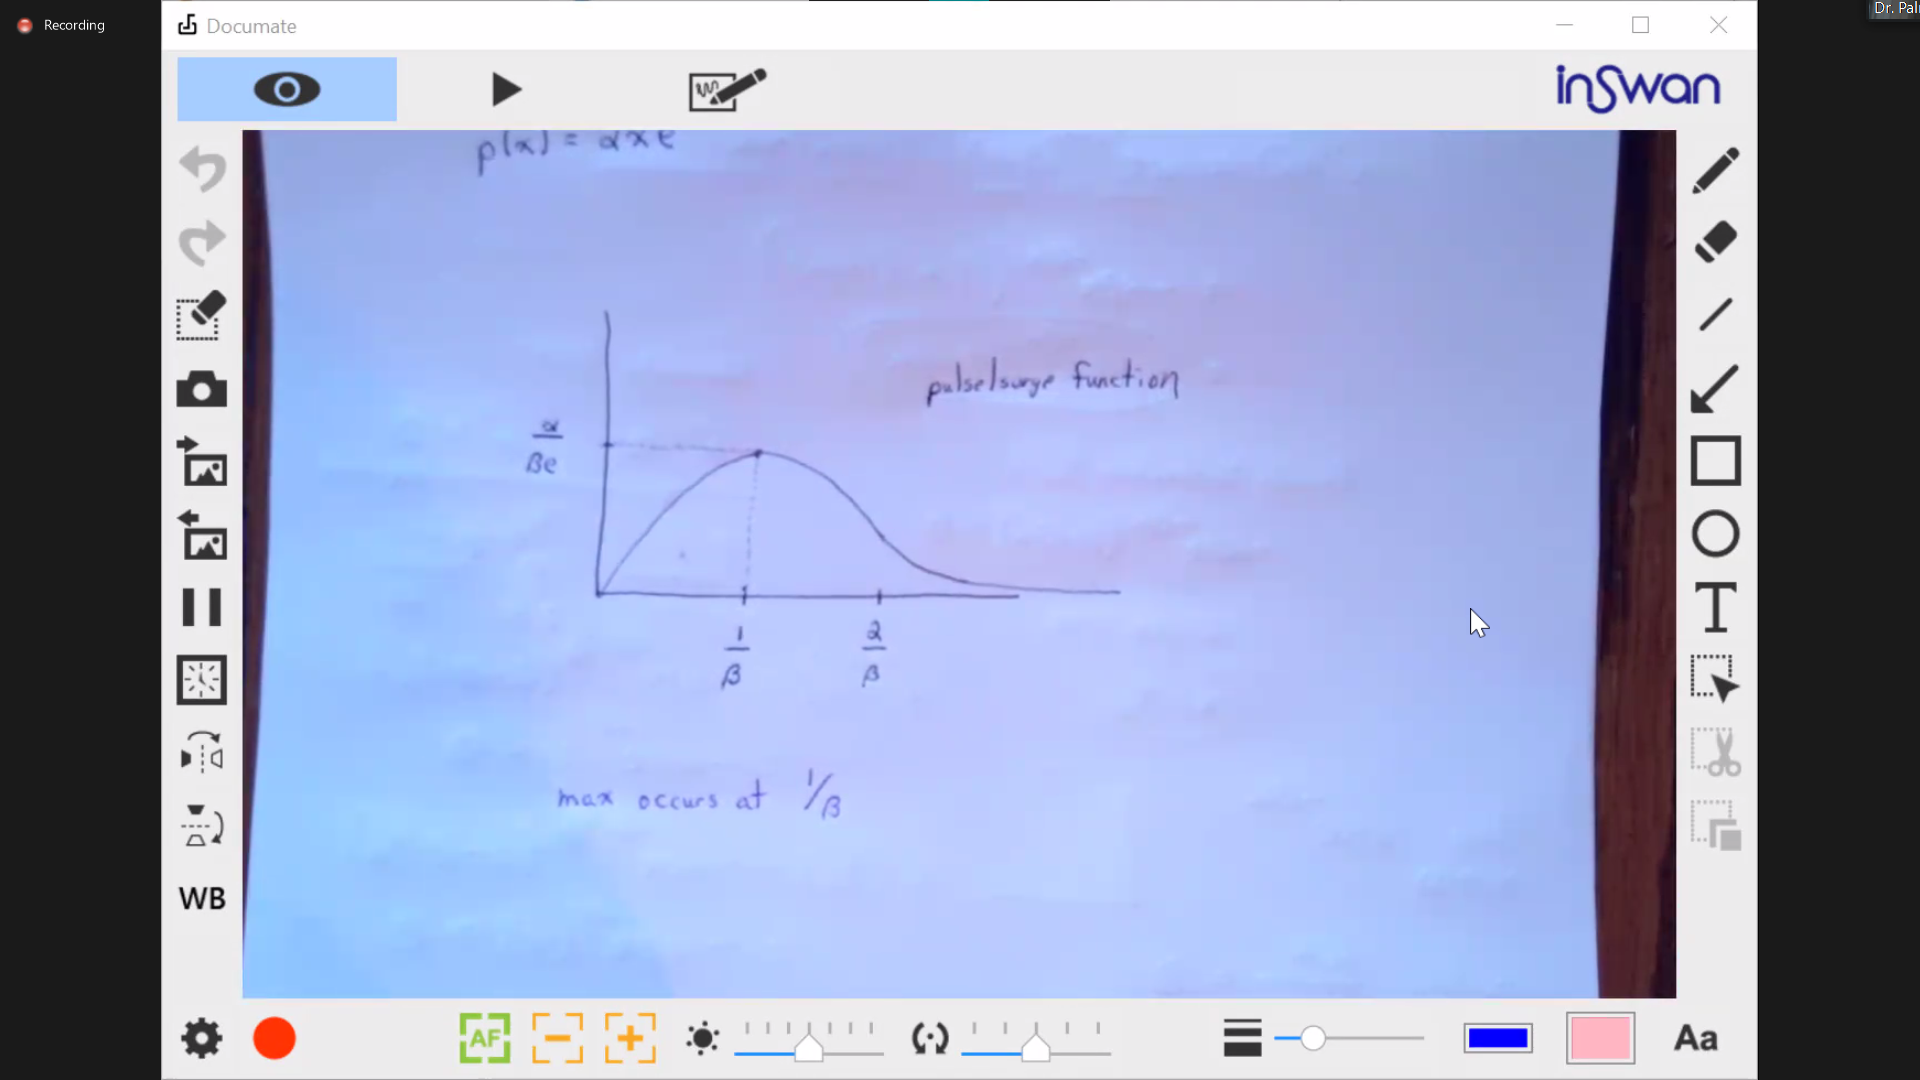 Recording
Documate
Dr. Pal
inSwan
p(x) = αxe
pulse/surge function
α
βe
1
β
2
β
max occurs at 1/β
WB
AF
T
Aa